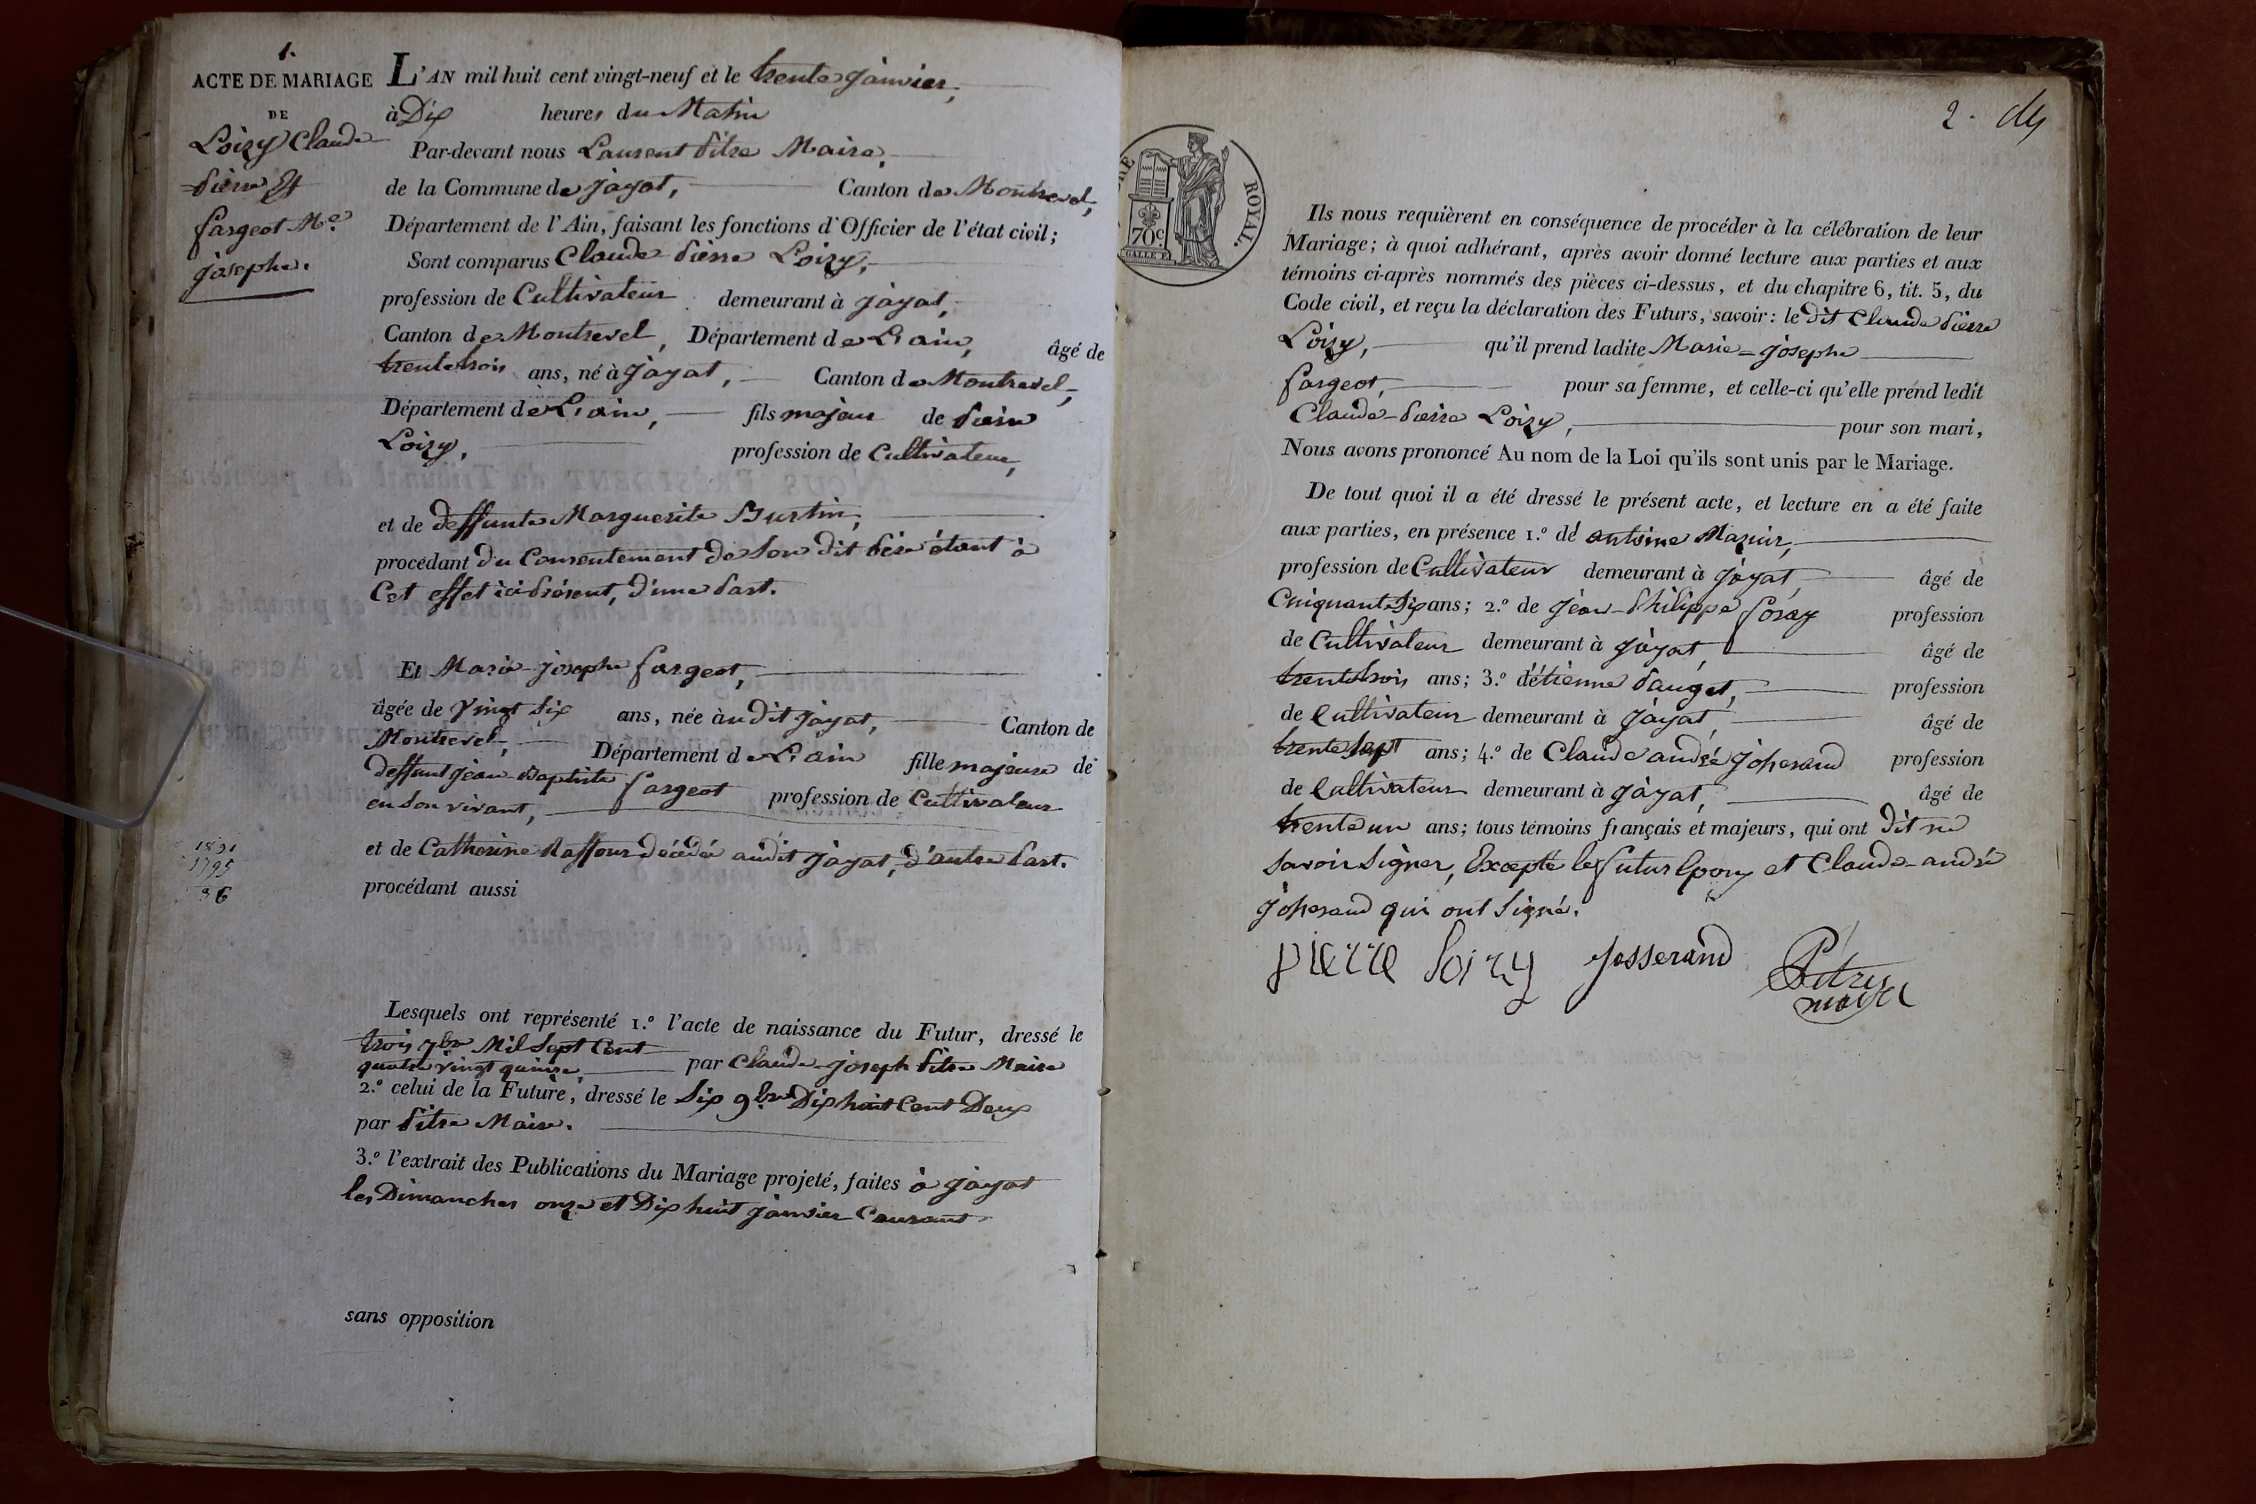 1.
ACTE DE MARIAGE
DE
Loizy Claude
Pierre Et
fargeot Me.
josephe.
L'AN mil huit cent vingt-neuf et le trente janvier,
à Dix heures du Matin
Par-devant nous Laurent Pitre Maire,
de la Commune de jayat, Canton de Montrevel,
Département de l'Ain, faisant les fonctions d'Officier de l'état civil;
Sont comparus Claude Pierre Loizy,
profession de Cultivateur demeurant à jayat,
Canton de Montrevel, Département de L'ain, âgé de
trente trois ans, né à jayat, Canton de Montrevel,
Département de L'ain, fils majeur de Pierre
Loizy, profession de Cultivateur,
et de deffunte Marguerite Burtin,
procédant du Consentement de Son dit Père étant à
Cet effet ici Présent, D'une Part.
Et Marie josephe fargeot,
âgée de Vingt Six ans, née àu dit jayat, Canton de
Montrevel, Département de L'ain fille majeure de
deffunt jean-Baptiste fargeot profession de Cultivateur
en Son vivant,
et de Catherine Raffour décédée audit jayat, D'autre Part.
procédant aussi
1795
36
Lesquels ont représenté 1.º l'acte de naissance du Futur, dressé le
trois 7bre Mil Sept Cent
quatre vingt quinze, par Claude-joseph Pitre Maire
2.º celui de la Future, dressé le Six 9bre Dix huit Cent Deux
par Pitre Maire.
3.º l'extrait des Publications du Mariage projeté, faites à jayat
les Dimanches onze et Dix huit janvier Courant
sans opposition
2.
ROYAL.
70c
Ils nous requièrent en conséquence de procéder à la célébration de leur
Mariage; à quoi adhérant, après avoir donné lecture aux parties et aux
témoins ci-après nommés des pièces ci-dessus, et du chapitre 6, tit. 5, du
Code civil, et reçu la déclaration des Futurs, savoir: le dit Claude Pierre
Loizy, qu'il prend ladite Marie-josephe
fargeot, pour sa femme, et celle-ci qu'elle prend ledit
Claude-Pierre Loizy, pour son mari,
Nous avons prononcé Au nom de la Loi qu'ils sont unis par le Mariage.
De tout quoi il a été dressé le présent acte, et lecture en a été faite
aux parties, en présence 1.º dé antoine Mazuir,
profession de Cultivateur demeurant à jayat, âgé de
Cinquante Six ans; 2.º de jean-Philippe foray profession
de Cultivateur demeurant à jayat, âgé de
trente trois ans; 3.º d'étienne Pauget, profession
de Cultivateur demeurant à jayat, âgé de
trente Sept ans; 4.º de Claude andré joherand profession
de Cultivateur demeurant à jayat, âgé de
trente un ans; tous témoins français et majeurs, qui ont dit ne
Savoir Signer, Excepté le futur Epoux et Claude-andré
joherand qui ont Signé.
pierre loizy josserand Pitre
maire